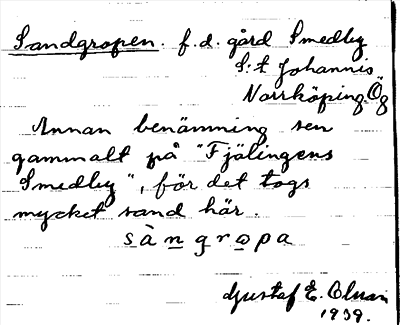 Sandgropen. f.d. gård Smedby
S:t Johannis
Norrköping Ög
Annan benämning sen
gammalt på "Fjälingens
Smedby", för det togs
mycket sand här.
sàngropa
Gustef E. Olsson
1939.